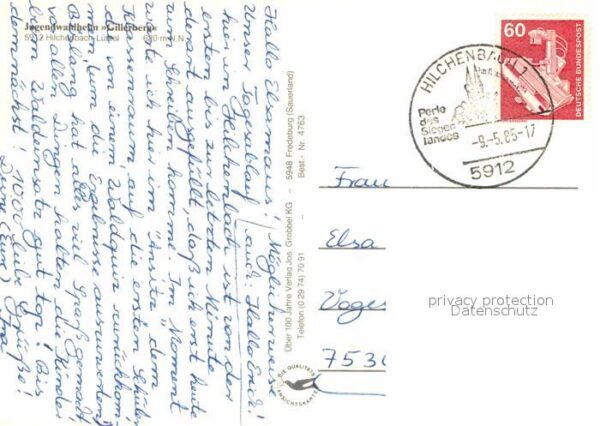 Jugendwaldheim »Gillerberg«
5912 Hilchenbach-Lützel 620 m ü.N.N.
Hallo Elsamaus! Möglicherweise
auch: Hallo Endi!
Unser Tagesablauf
hier in Hilchenbach ist von der
ersten bis zur letzten Minute
derart ausgefüllt, daß ich erst heute
zum Schreiben komme. Im Moment
sitze ich hier im "Ansitz" den
und auf die ersten Schüler
die von einem Waldgang
um die Ergebnisse auszuwerten.
Bislang hat es viel Spaß gemacht
vor allen Dingen halten die Kinder
den Waldeinsatz gut top! Bis
demnächst! 1000 liebe Grüße!
Über 100 Jahre Verlag Jos. Grobbel KG – 5948 Fredeburg (Sauerland)
Telefon (0 29 74) 70 91 – Best.- Nr. 4763
DIE QUALITÄTS
ANSICHTSKARTE
60
DEUTSCHE BUNDESPOST
HILCHENBACH 1
Perle
des
Siegerlandes
-9.-5.85-17
5912
Frau
Elsa
Voges
7530
privacy protection
Datenschutz